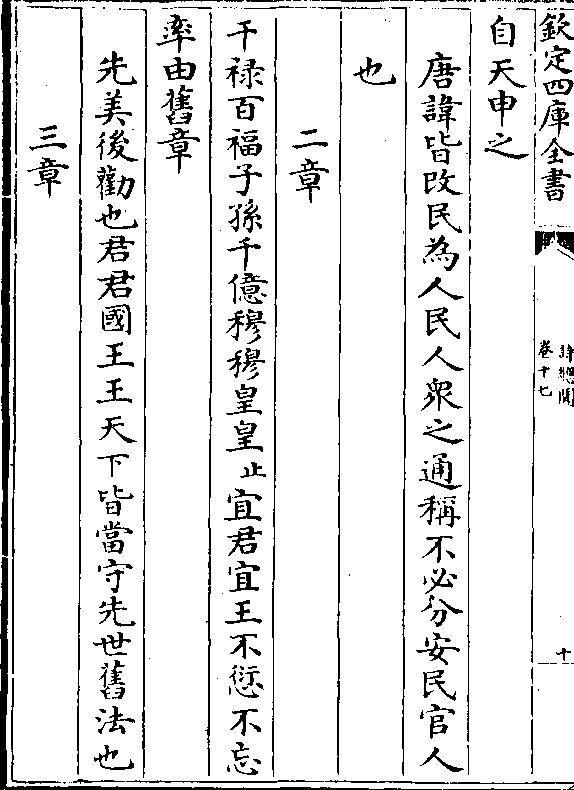 欽定四庫全書
詩總聞
卷十七
十
自天申之
唐諱皆改民為人民人衆之通稱不必分安民官人
也
二章
干禄百福子孫千億穆穆皇皇止宜君宜王不愆不忘
率由舊章
先美後勸也君君國王王天下皆當守先世舊法也
三章